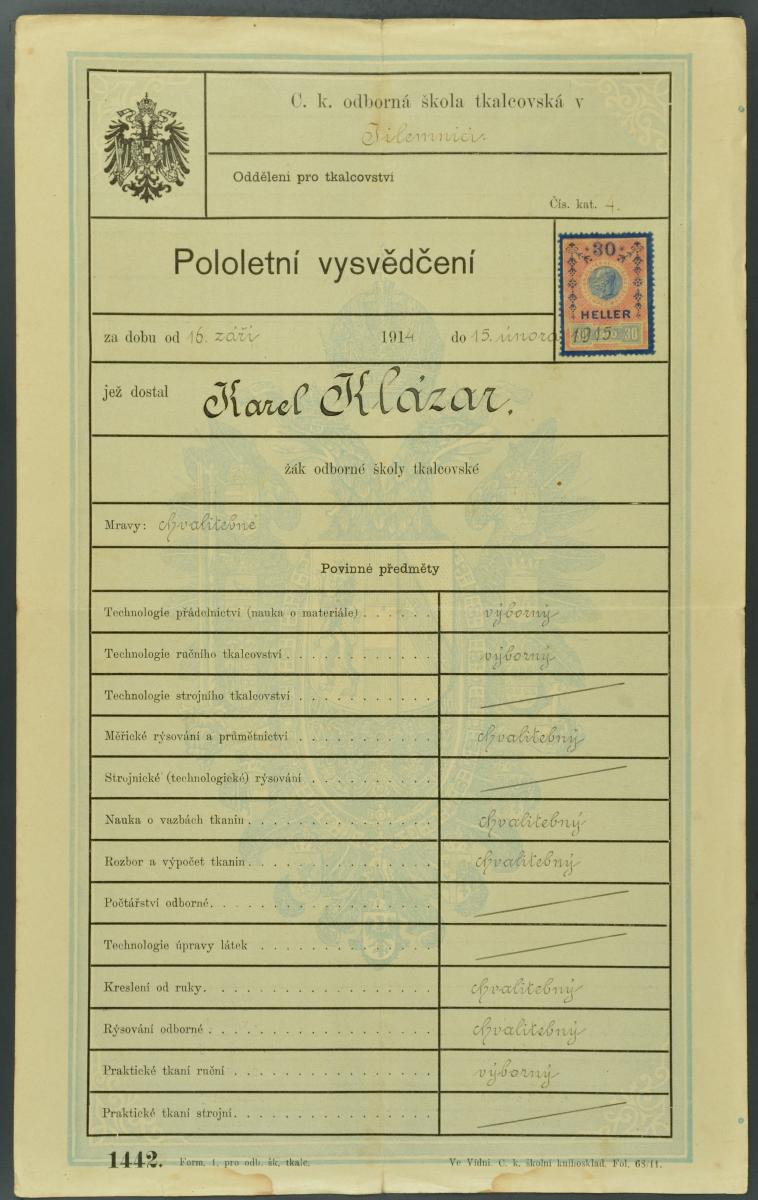 C. k. odborná škola tkalcovská v
Jilemnici.
Oddělení pro tkalcovství
Čís. kat. 4.
Pololetní vysvědčení
30
HELLER
30
za dobu od 16. září 1914 do 15. února 1915
jež dostal Karel Klázar.
žák odborné školy tkalcovské
Mravy: chvalitebné
Povinné předměty
Technologie přádelnictví (nauka o materiále) . . . . . . výborný
Technologie ručního tkalcovství . . . . . . . . . . . . výborný
Technologie strojního tkalcovství . . . . . . . . . . .
Měřické rýsování a průmětnictví . . . . . . . . . . . chvalitebný
Strojnické (technologické) rýsování . . . . . . . . . .
Nauka o vazbách tkanin . . . . . . . . . . . . . . . chvalitebný
Rozbor a výpočet tkanin . . . . . . . . . . . . . . . chvalitebný
Počtářství odborné . . . . . . . . . . . . . . . . .
Technologie úpravy látek . . . . . . . . . . . . . .
Kreslení od ruky . . . . . . . . . . . . . . . . . . chvalitebný
Rýsování odborné . . . . . . . . . . . . . . . . . . chvalitebný
Praktické tkaní ruční . . . . . . . . . . . . . . . . výborný
Praktické tkaní strojní . . . . . . . . . . . . . . . .
1442. Form. 1. pro odb. šk. tkalc. Ve Vídni. C. k. školní knihosklad. Fol. 63/11.